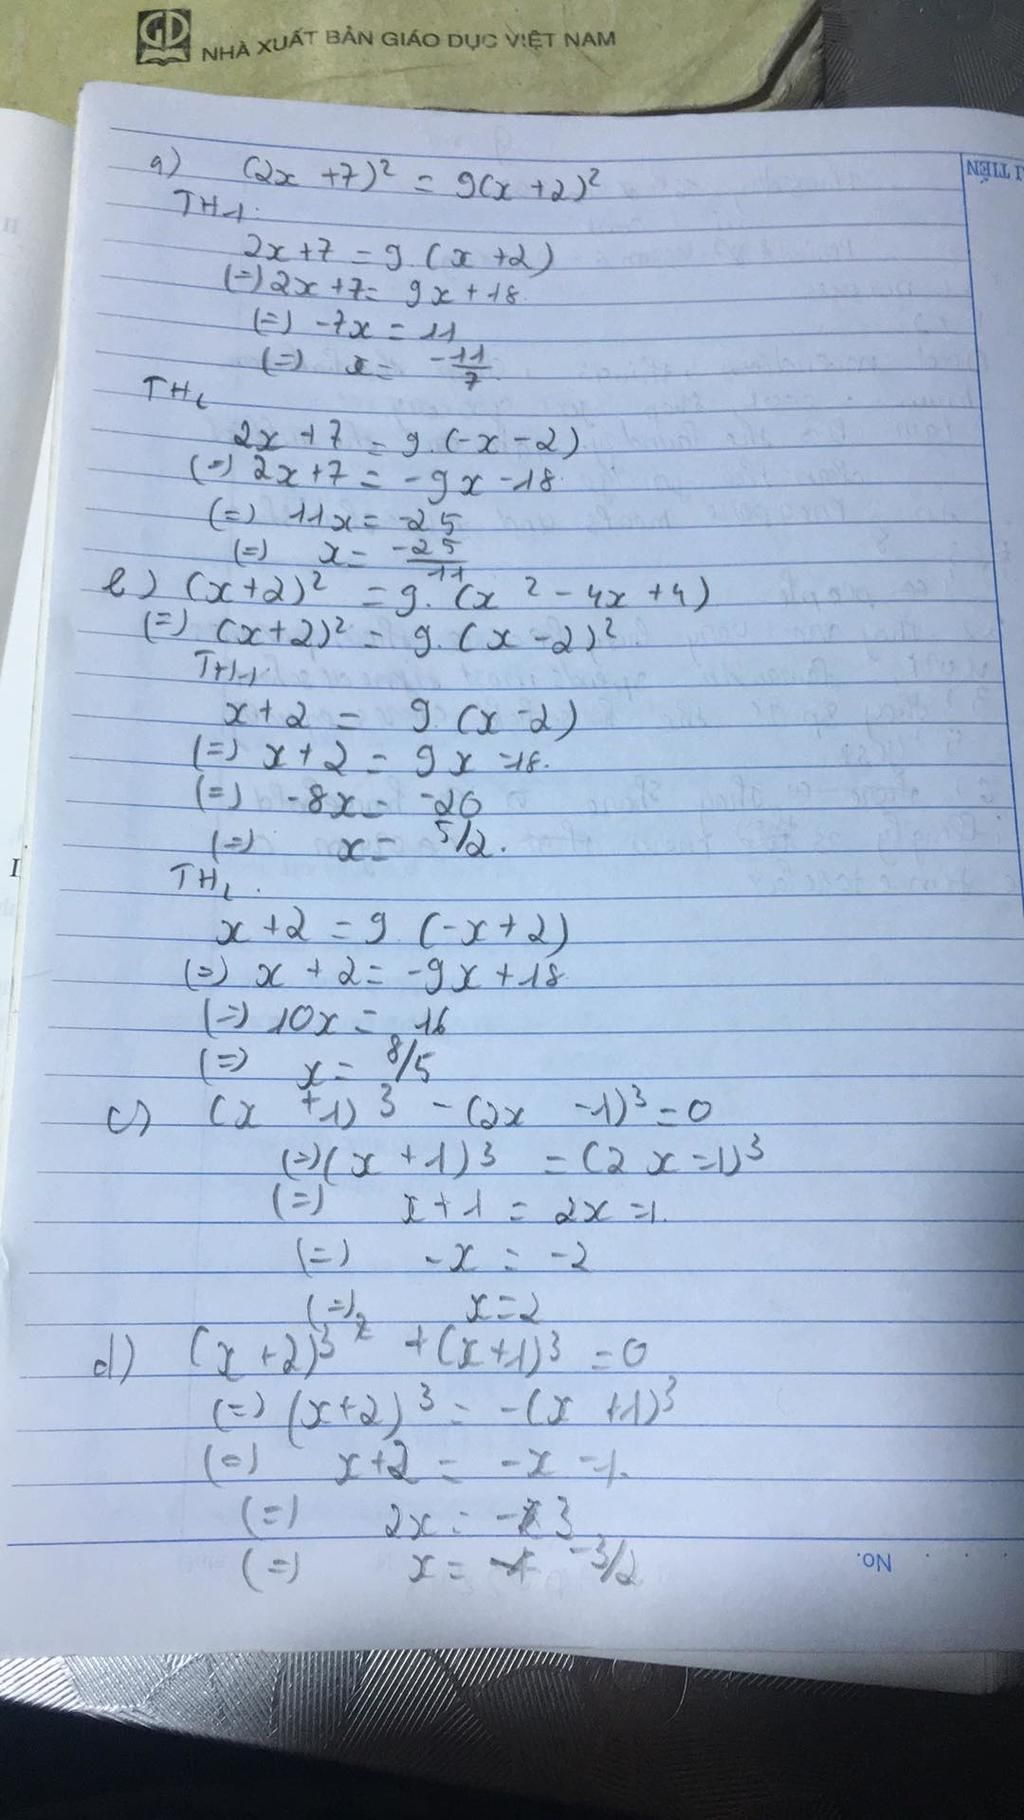 GD NHÀ XUẤT BẢN GIÁO DỤC VIỆT NAM
a) (2x + 7)² = 9(x + 2)²
TH1:
2x + 7 = 9.(x + 2)
(=) 2x + 7 = 9x + 18
(=) -7x = 11
(=) x = -11/7
TH2
2x + 7 = 9.(-x - 2)
(=) 2x + 7 = -9x - 18
(=) 11x = -25
(=) x = -25/11
b) (x + 2)² = 9.(x² - 4x + 4)
(=) (x + 2)² = 9.(x - 2)²
TH1
x + 2 = 9(x - 2)
(=) x + 2 = 9x - 18.
(=) -8x = -20
(=) x = 5/2.
TH2.
x + 2 = 9(-x + 2)
(=) x + 2 = -9x + 18
(=) 10x = 16
(=) x = 8/5
c) (x + 1)³ - (2x - 1)³ = 0
(=) (x + 1)³ = (2x - 1)³
(=) x + 1 = 2x - 1.
(=) -x = -2
(=) x = 2
d) (x + 2)³ + (x + 1)³ = 0
(=) (x + 2)³ = -(x + 1)³
(=) x + 2 = -x - 1.
(=) 2x = -3
(=) x = -3/2
No.